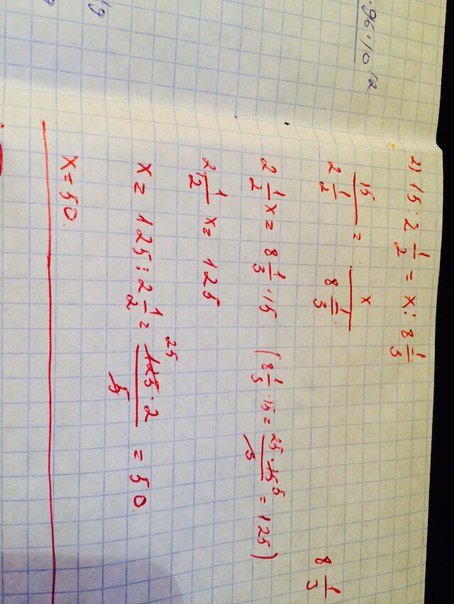 2) 15 : 2 1/2 = x : 8 1/3
15 / 2 1/2 = x / 8 1/3
2 1/2 x = 8 1/3 · 15 (8 1/3 · 15 = 25 · 15 5 / 3 = 125)
2 1/2 x = 125
x = 125 : 2 1/2 = 125 25 · 2 / 5 = 50
x = 50.
8 1/3